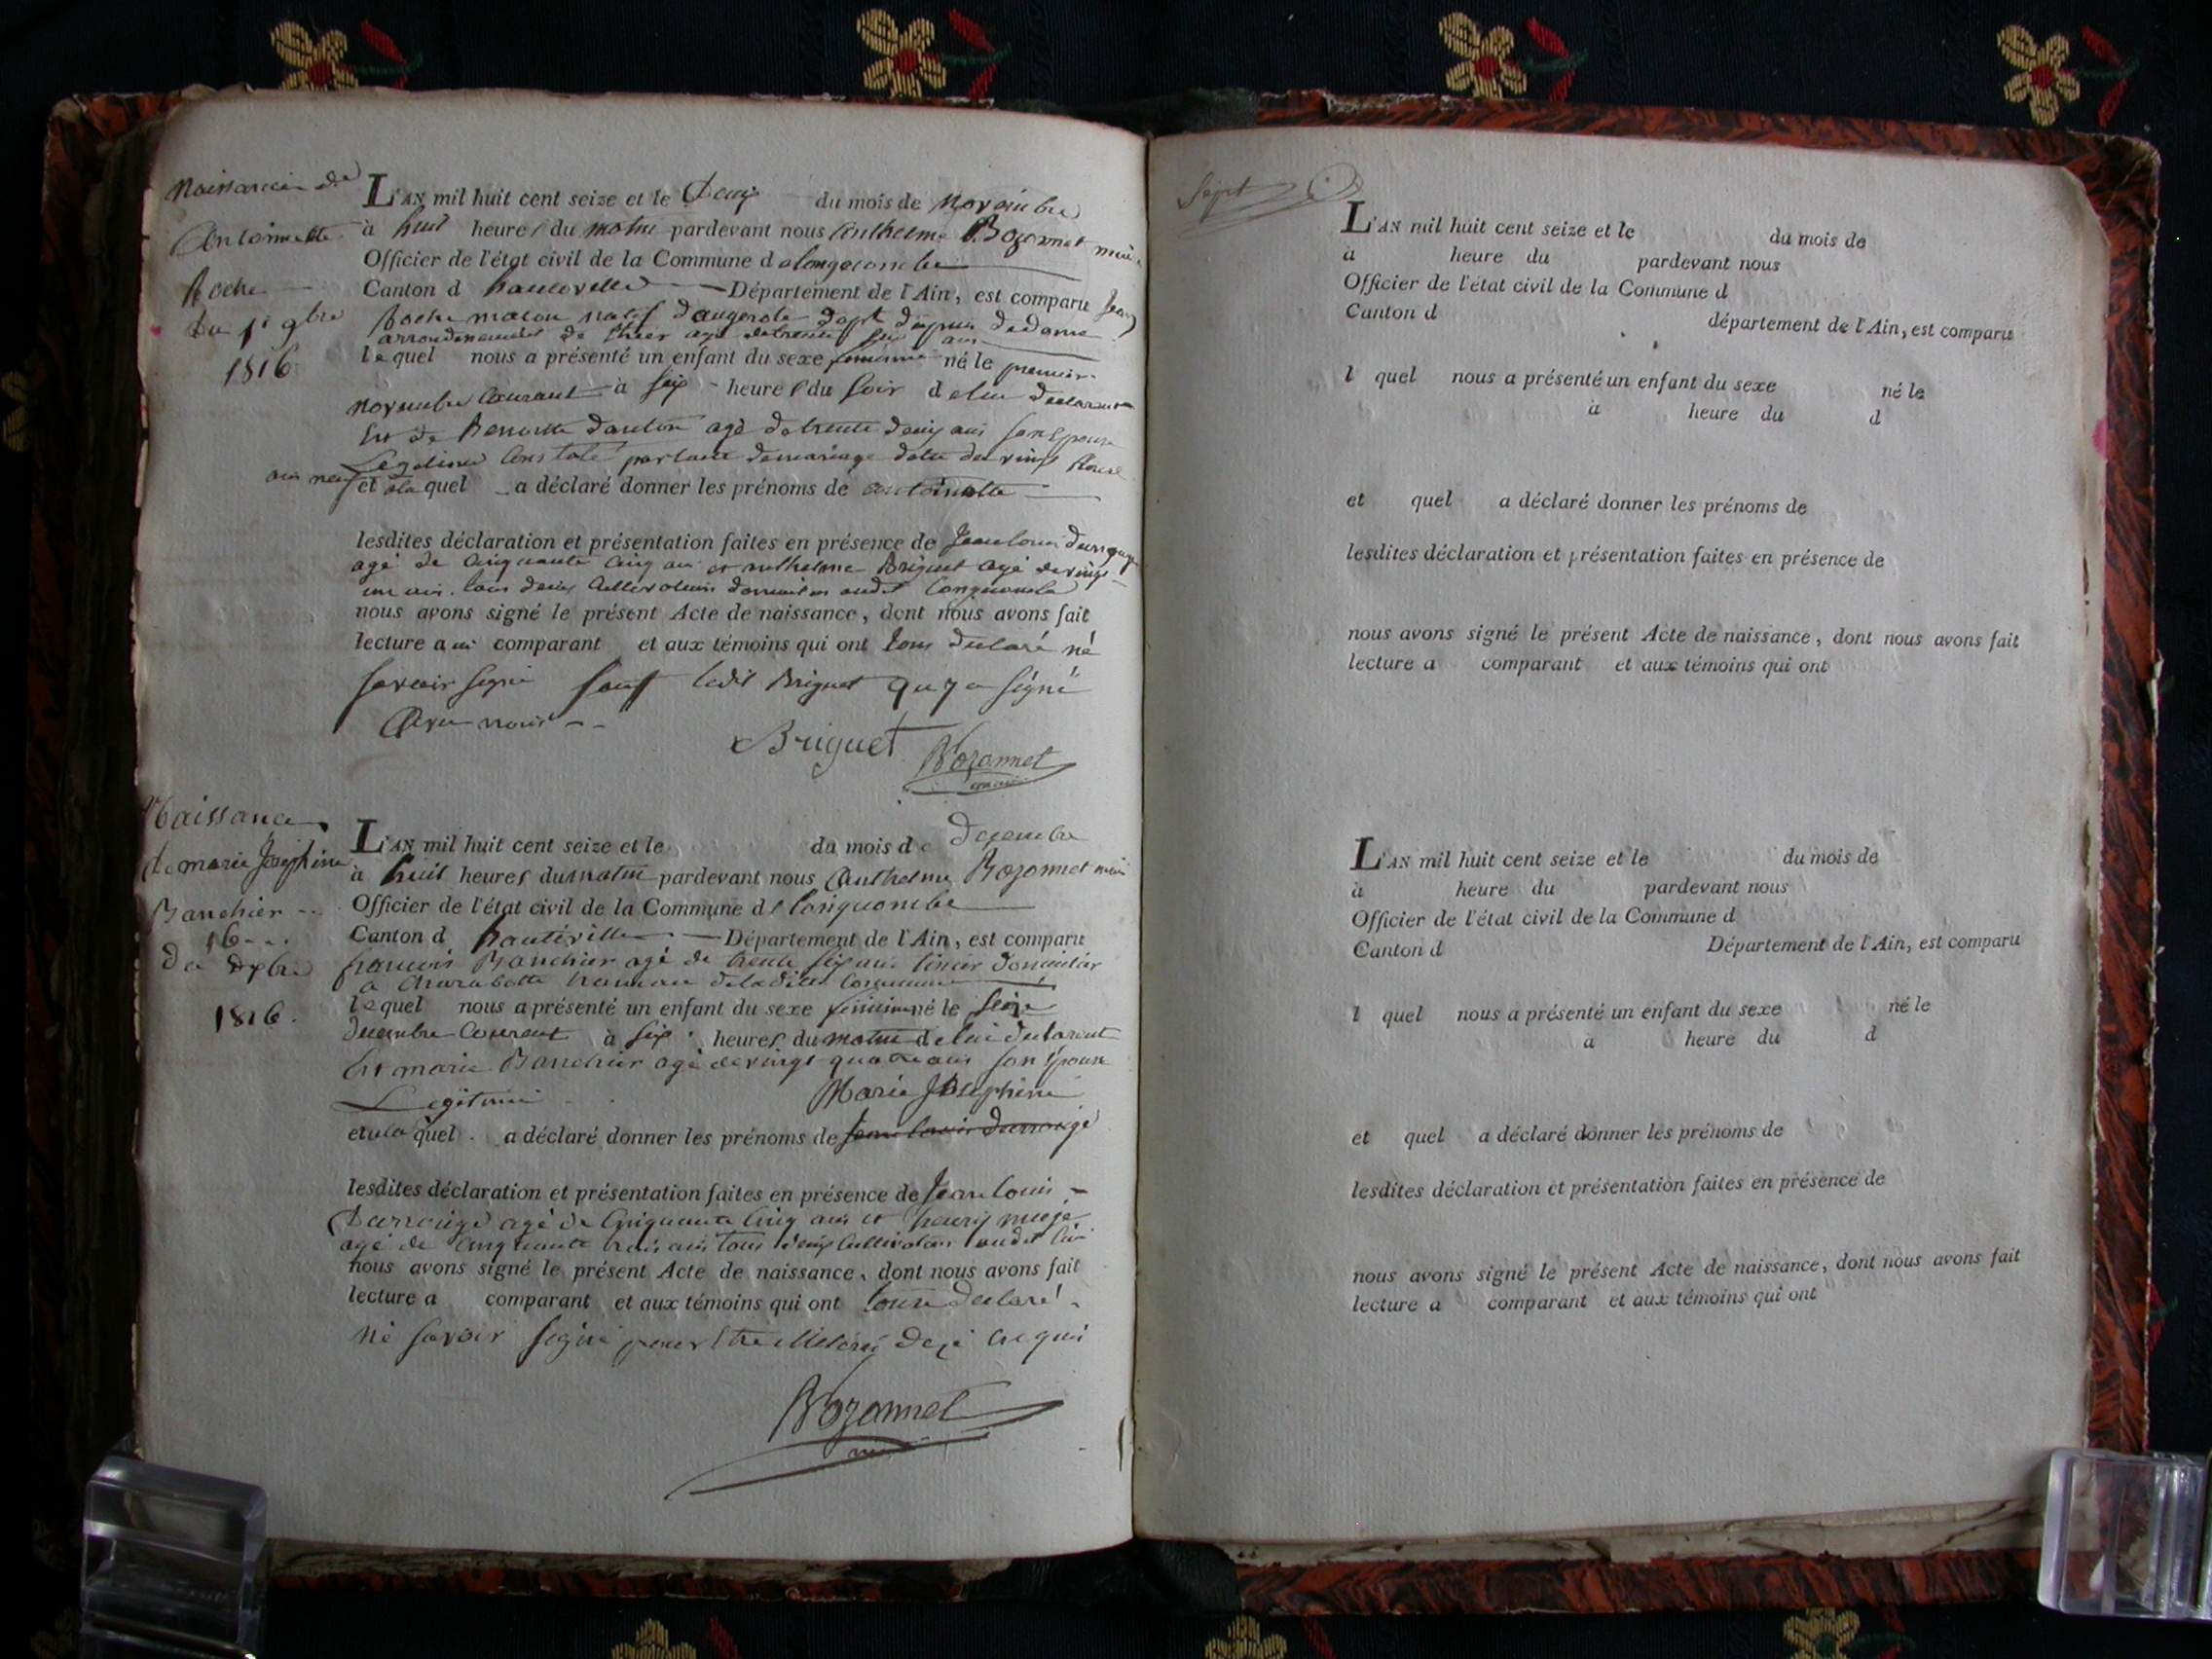 Naissance de
Antoinette
Roche
Du 1er 9bre
1816
L'AN mil huit cent seize et le Deux du mois de Novembre
à huit heures du matin pardevant nous Anthelme Bozonnet maire
Officier de l'état civil de la Commune de longecombe
Canton d hauteville Département de l'Ain, est comparu Jean
Roche macon natif
arrondissement de agé de trente six ans
lequel nous a présenté un enfant du sexe feminin né le premier
novembre Courant à six heures du soir de lui declarant
Et de Benoitte agé de trente deux ans son Epouse
Legitime Constaté par lacte de mariage
an neuf et ala quel a déclaré donner les prénoms de antoinette
lesdites déclaration et présentation faites en présence de Jean louis
agé de Cinquante Cinq ans et anthelme Briguet agé de vingt
un ans. tous deux Cultivateurs audit Longecombe
nous avons signé le présent Acte de naissance, dont nous avons fait
lecture au comparant et aux témoins qui ont tous declaré né
savoir signé sauf ledit Briguet qu y a signé
Avec nous
Briguet Bozonnet
maire
Naissance
de marie Josephine
Banchier
16
du Dxbre
1816.
L'AN mil huit cent seize et le du mois de Decembre
à huit heures du matin pardevant nous Anthelme Bozonnet maire
Officier de l'état civil de la Commune de longecombe
Canton d hauteville Département de l'Ain, est comparu
francois Banchier agé de trente six ans
a hameau de ladite Commune
lequel nous a présenté un enfant du sexe feminin né le seize
decembre Courant à six heures du matin de lui declarant
Et marie Banchier agé de vingt quatre ans son Epouse
Legitime Marie Josephine
et ala quel a déclaré donner les prénoms de Jean louis
lesdites déclaration et présentation faites en présence de Jean louis
agé de Cinquante Cinq ans et henry
agé de Cinquante trois ans tous deux Cultivateurs audit lieu
nous avons signé le présent Acte de naissance, dont nous avons fait
lecture a comparant et aux témoins qui ont tous declaré
né savoir signé pour Etre déjà
Bozonnet
maire
Sept
L'AN mil huit cent seize et le du mois de
à heure du pardevant nous
Officier de l'état civil de la Commune d
Canton d département de l'Ain, est comparu
l quel nous a présenté un enfant du sexe né le
à heure du d
et quel a déclaré donner les prénoms de
lesdites déclaration et présentation faites en présence de
nous avons signé le présent Acte de naissance, dont nous avons fait
lecture a comparant et aux témoins qui ont
L'AN mil huit cent seize et le du mois de
à heure du pardevant nous
Officier de l'état civil de la Commune d
Canton d Département de l'Ain, est comparu
l quel nous a présenté un enfant du sexe né le
à heure du d
et quel a déclaré donner les prénoms de
lesdites déclaration et présentation faites en présence de
nous avons signé le présent Acte de naissance, dont nous avons fait
lecture a comparant et aux témoins qui ont